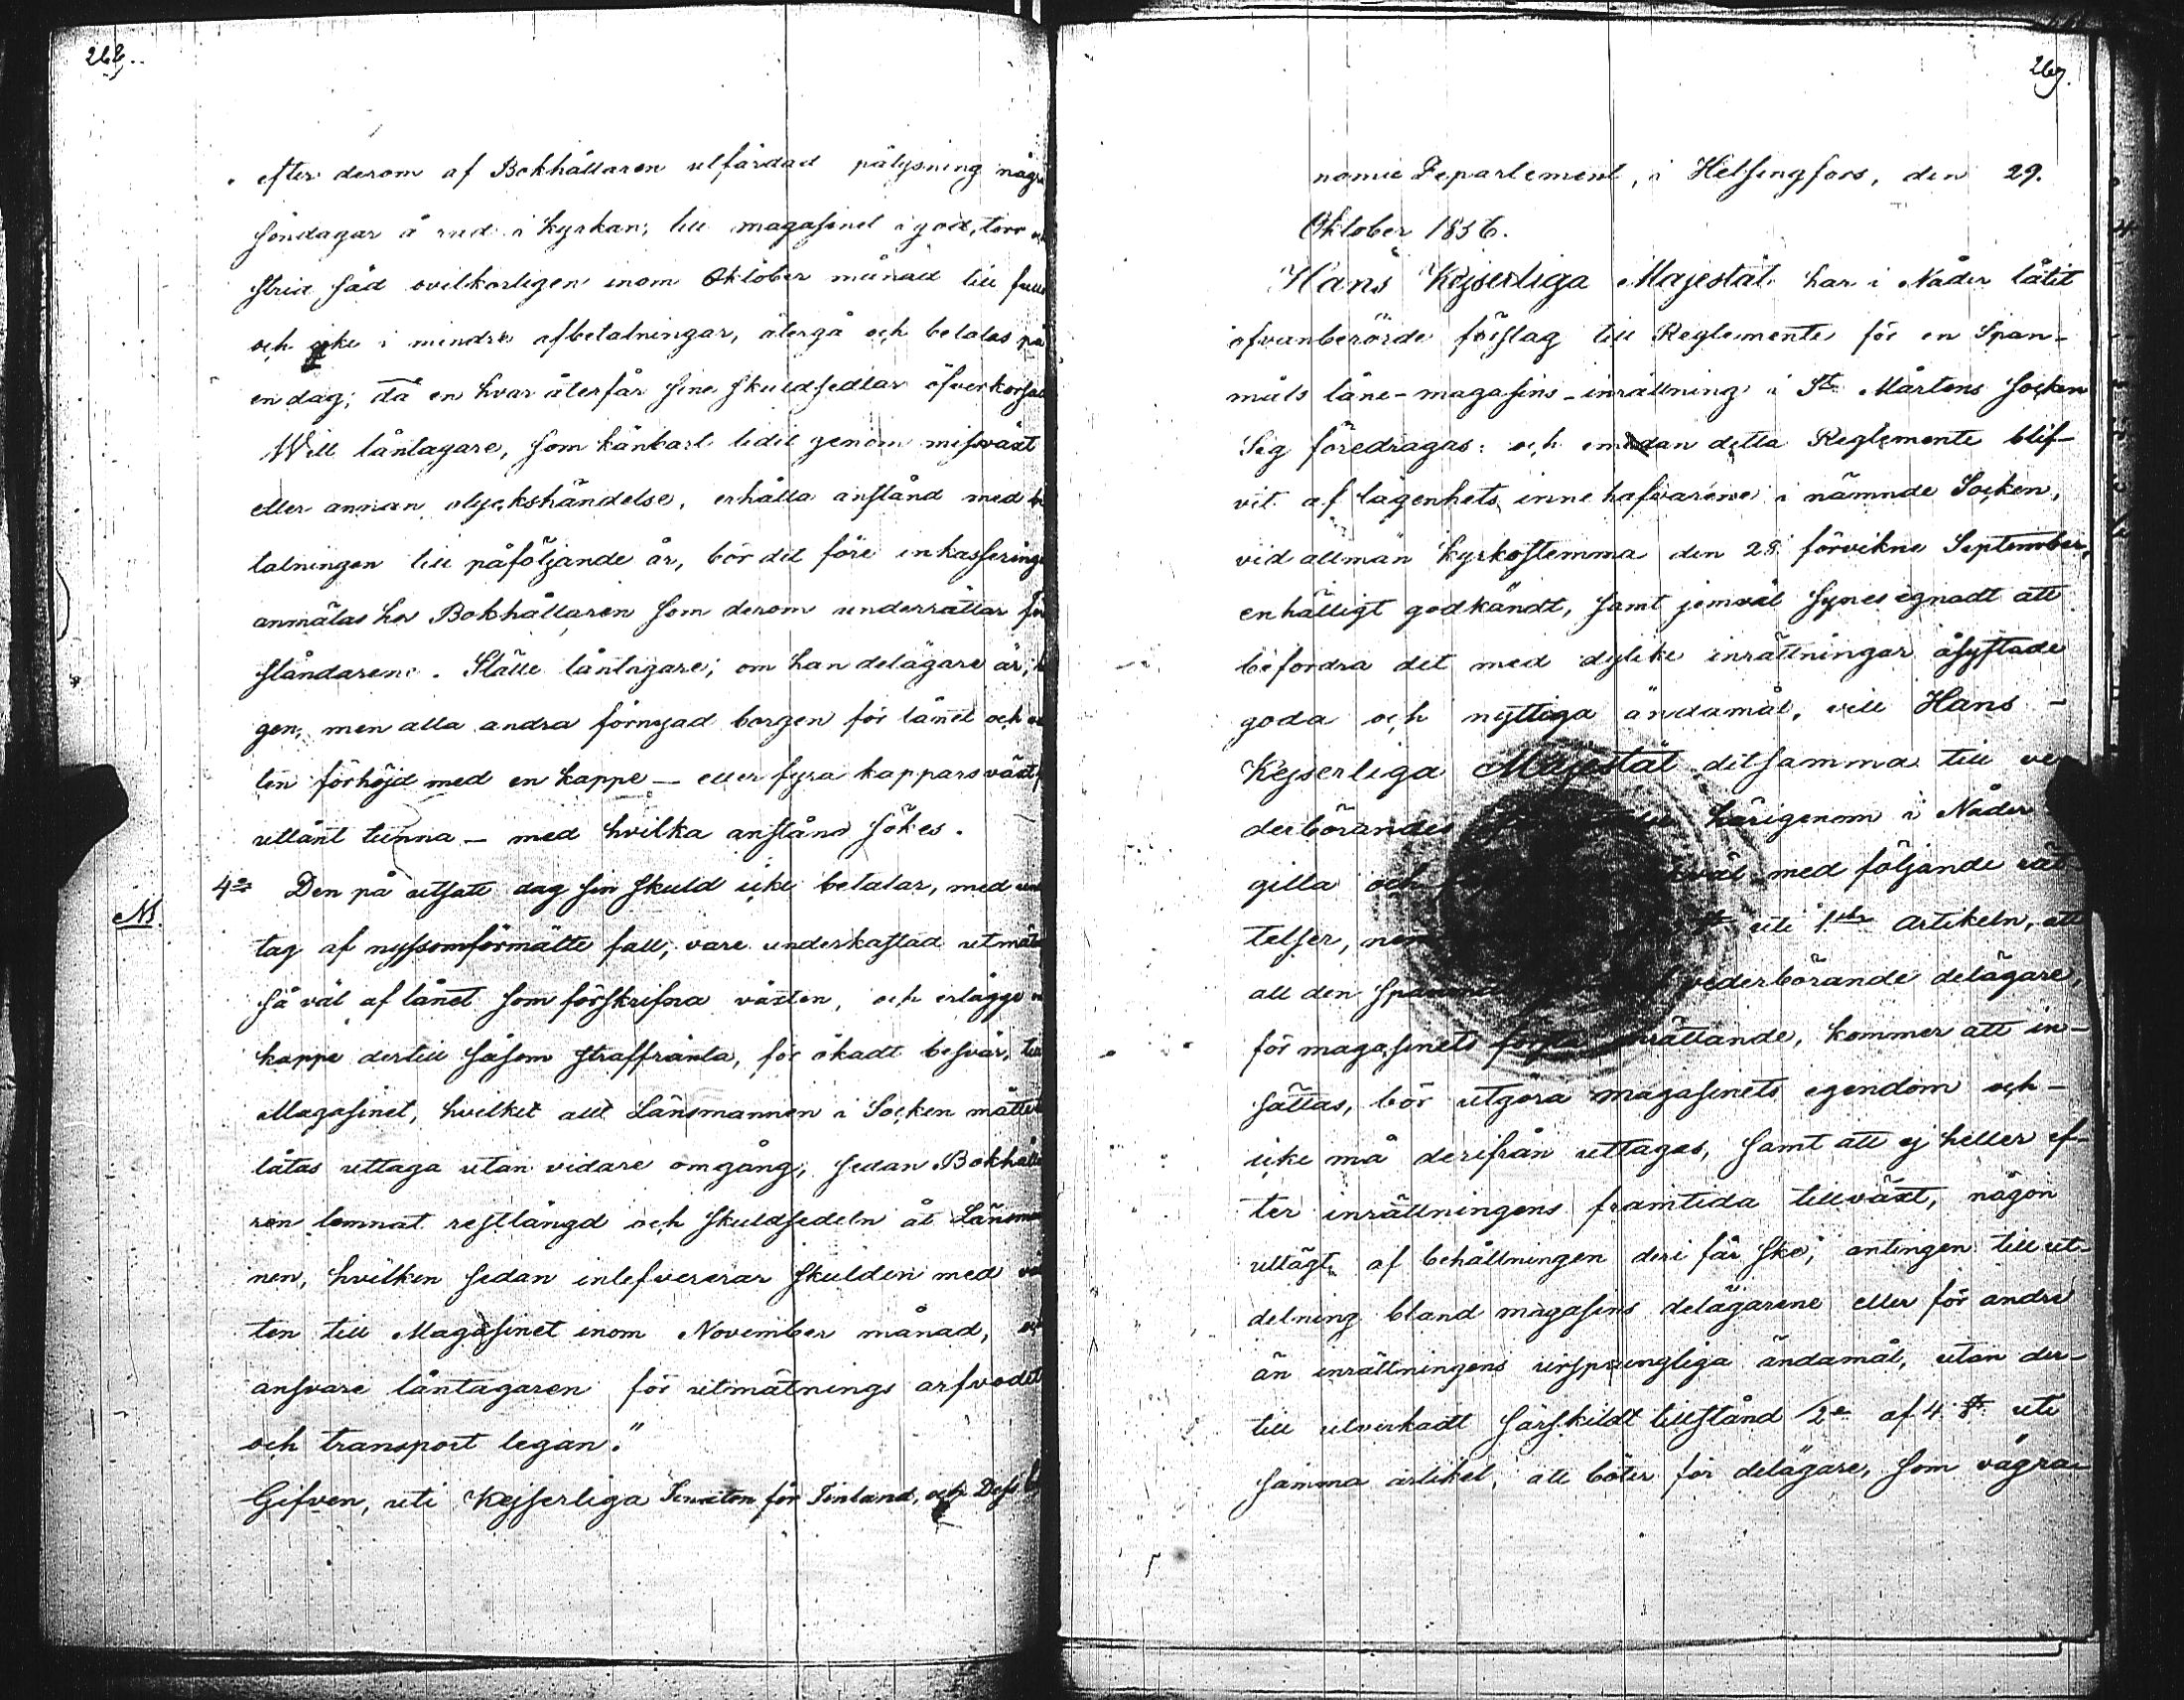 efter derom af Bokhållaren utfärdad pålysning några
söndagar å rad i kyrkan, till magasinet i god, torr
strid säd ovilkorligen inom Oktober månad till fullo
och icke i mindre afbetalningar, återgå och betalas på
en dag; då en hvar återfår sine skuldsedlar öfverkorsad
Will låntagare, som känbart lidit genom missväxt
eller annan olyckshändelse, erhålla anstånd med be
talningen till påföljande år, bör det före inkassering
anmälas hos Bokhållaren som derom underrättar fö
ståndarene. Ställe låntagare; om han delägare är,
gen, men alla andra förnyad borgen för lånet och
ten förhöjd med en kappe — eller fyra kappars växt
utlånt tunna — med hvilka anstånd sökes.
4o Den på utsatt dag sin skuld icke betalar, med un
M.
tag af nyssomförmälte fall, vare underkastad utmät
så väl af lånet som förskrifna växten, och erlägge
kappe dertill såsom straffränta, för ökadt besvär, till
Magasinet, hvilket allt Länsmannen i Socken måtte
låtas uttaga utan vidare omgång, sedan Bokhålla
ren lemnat restlängd och skuldsedeln åt Länsman
nen, hvilken sedan inlefvererar skulden med vä
ten till Magasinet inom November månad, och
ansvare låntagaren för utmätnings arfvodet
och transport legan."
Gifven, uti Kejserliga Senaten för Finland, och Dess
267.
nomie Departement, i Helsingfors, den 29.
Oktober 1856.
Hans Kejserliga Majestät har i Nåder låtit
ofvanberörde förslag till Reglemente för en Span-
måls låne-magasins-inrättning i St Mårtens Socken
Sig föredragas: och emedan detta Reglemente blif-
vit af lägenhets innehafvarene i nämnde Socken,
vid allmän kyrkostemma den 28 förvikne September,
enhälligt godkändt, samt jemväl synes egnadt att
befordra det med dylike inrättningar åsyftade
goda och nyttiga ändamål, vill Hans -
Kejserliga Majestät detsamma till ve
derbörandes härigenom i Nåder
gilla och med följande rät
telser, uti 1sta Artikeln, att
all den vederbörande delägare,
för magasinets första inrättande, kommer att in-
sättas, bör utgöra magasinets egendom och -
icke må derifrån uttagas, samt att ej heller ef-
ter inrättningens framtida tillväxt, någon
uttägt af behållningen deri får ske, antingen till ut-
delning bland magasins delägarene eller för andre
än inrättningens ursprungliga ändamål, utan der-
till utverkadt särskildt tillstånd /2o af 4 § uti
samma artikel, att böter för delägare, som vägra-